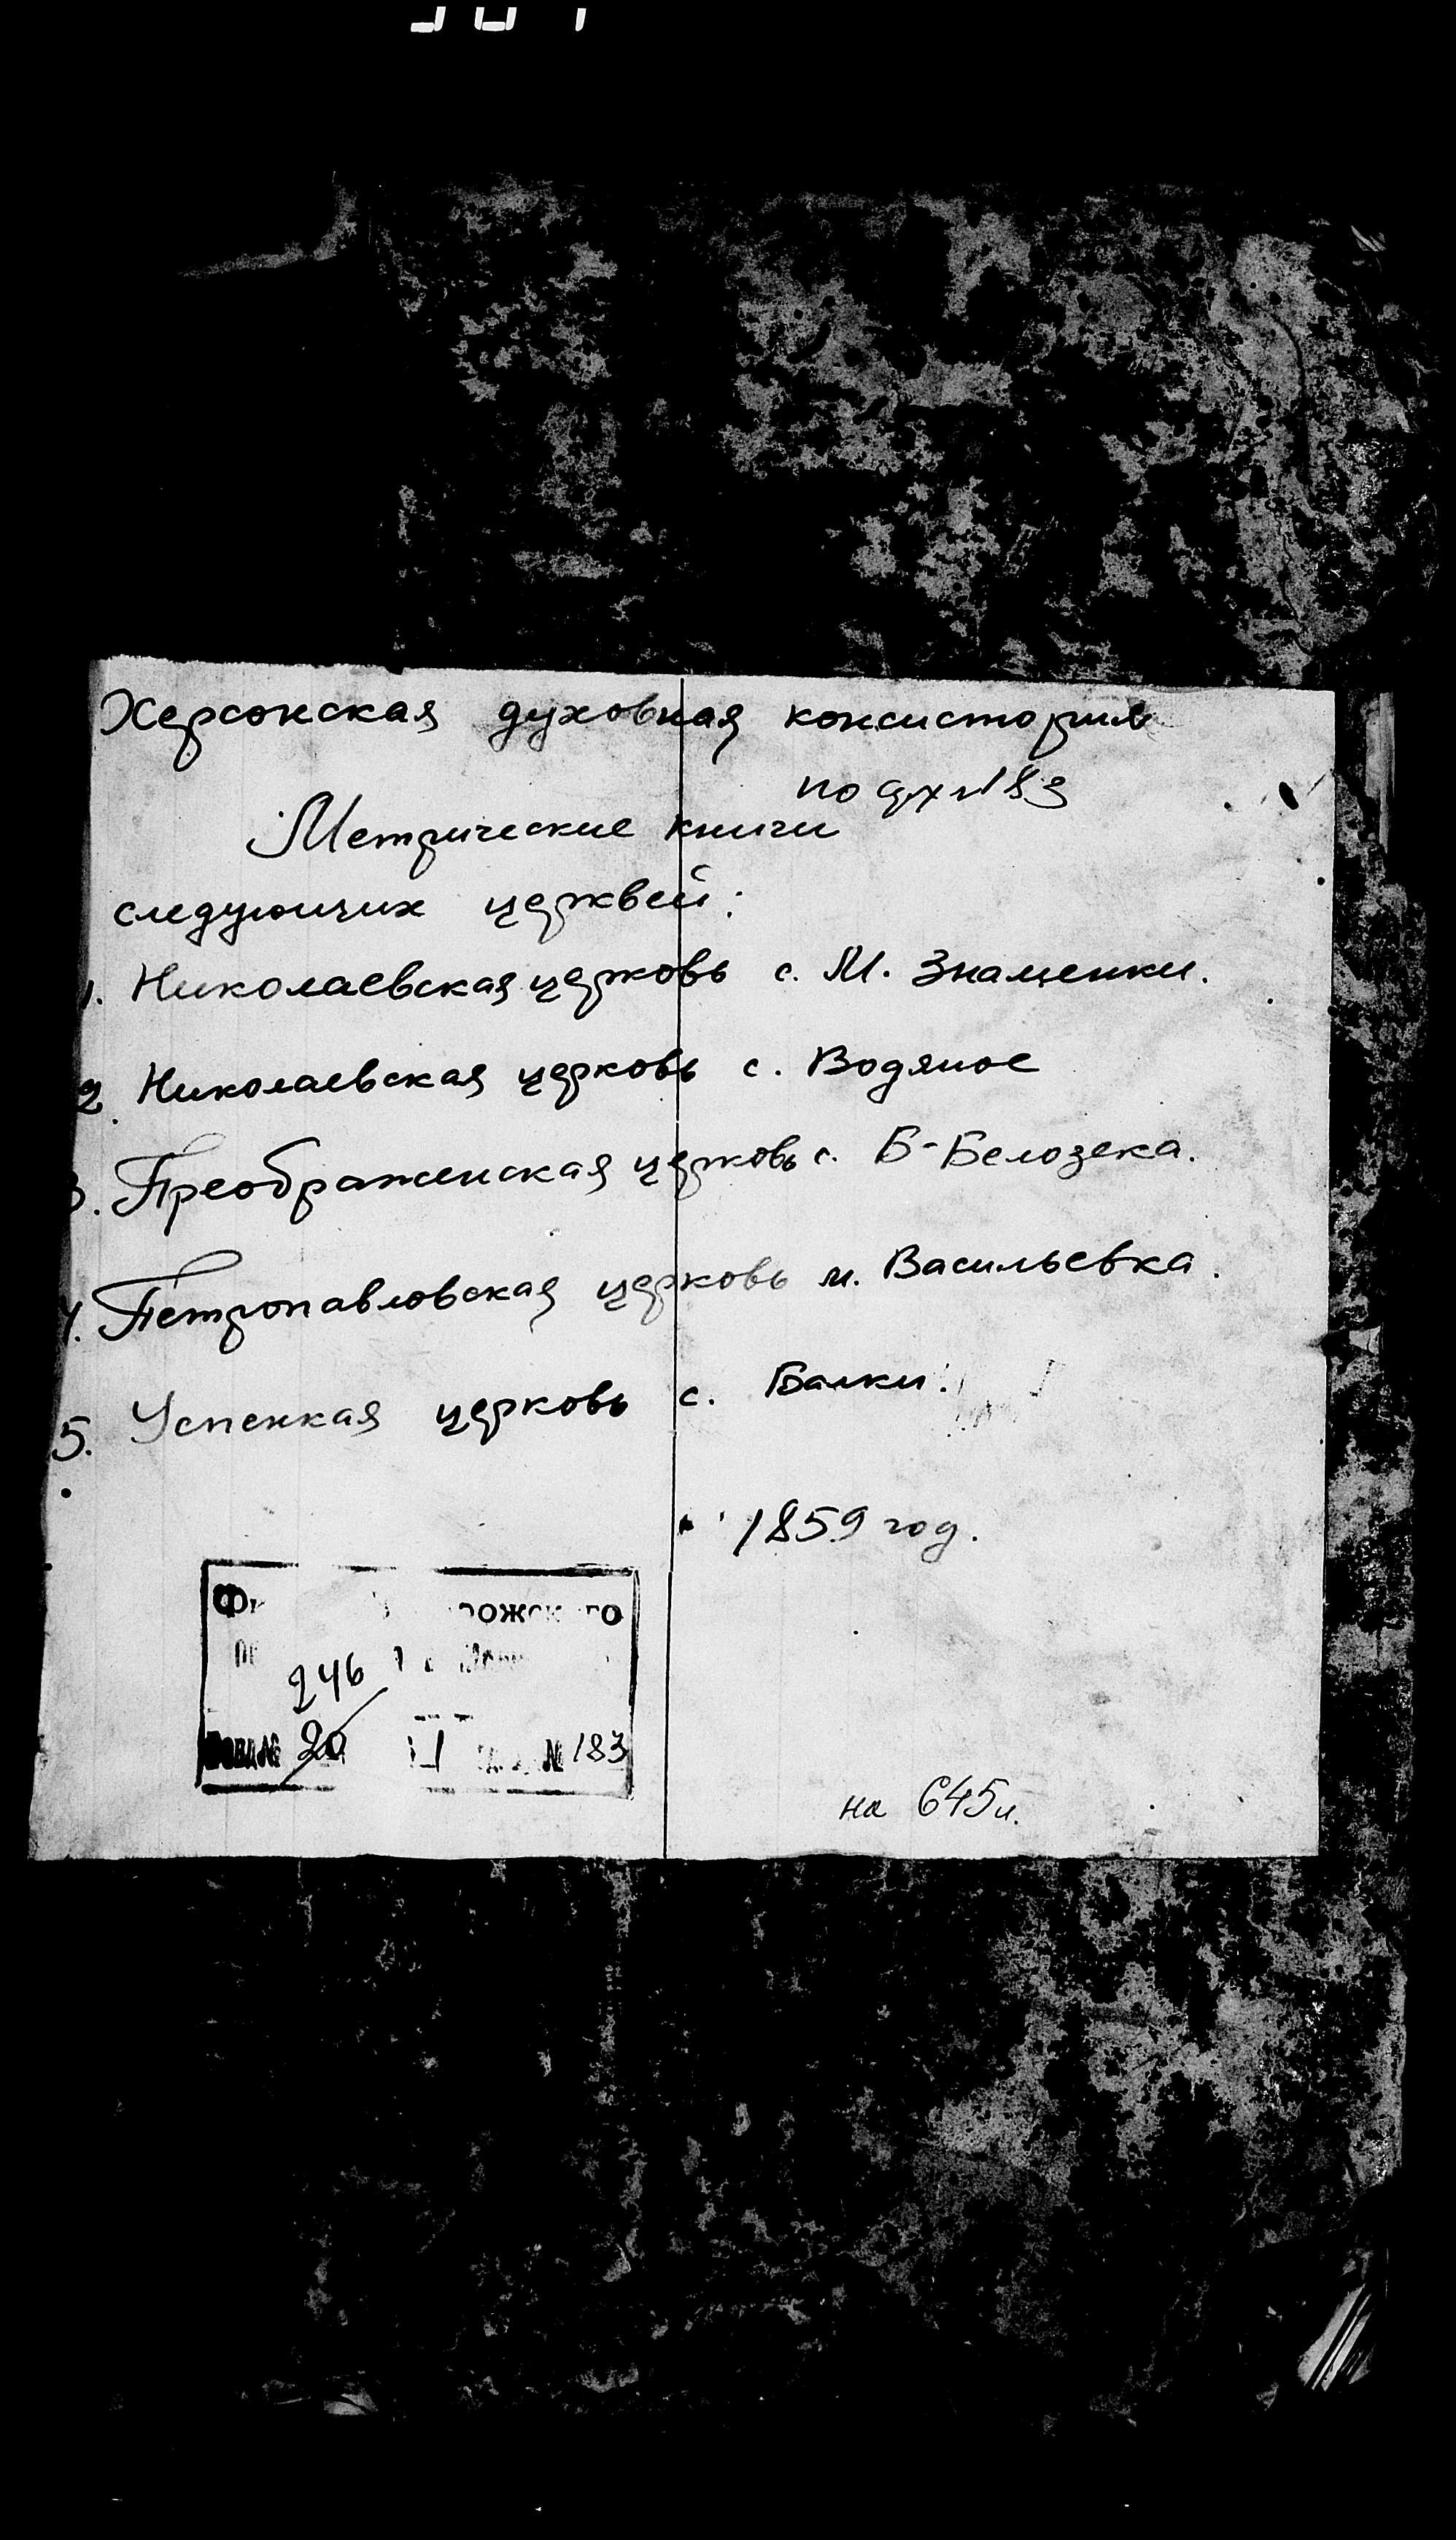 Херсонская духовная консистория
по
Метрические книги
следующих церквей:
1. Николаевская церковь с. М. Знаменки.
2. Николаевская церковь с. Водяное
3. Преображенская церковь с. Б-Белозека.
4. Петропавловская церковь м. Васильевка.
5. Успенкая церковь с. Балки.
1859 год.
246
20 № 183
на 645 л.